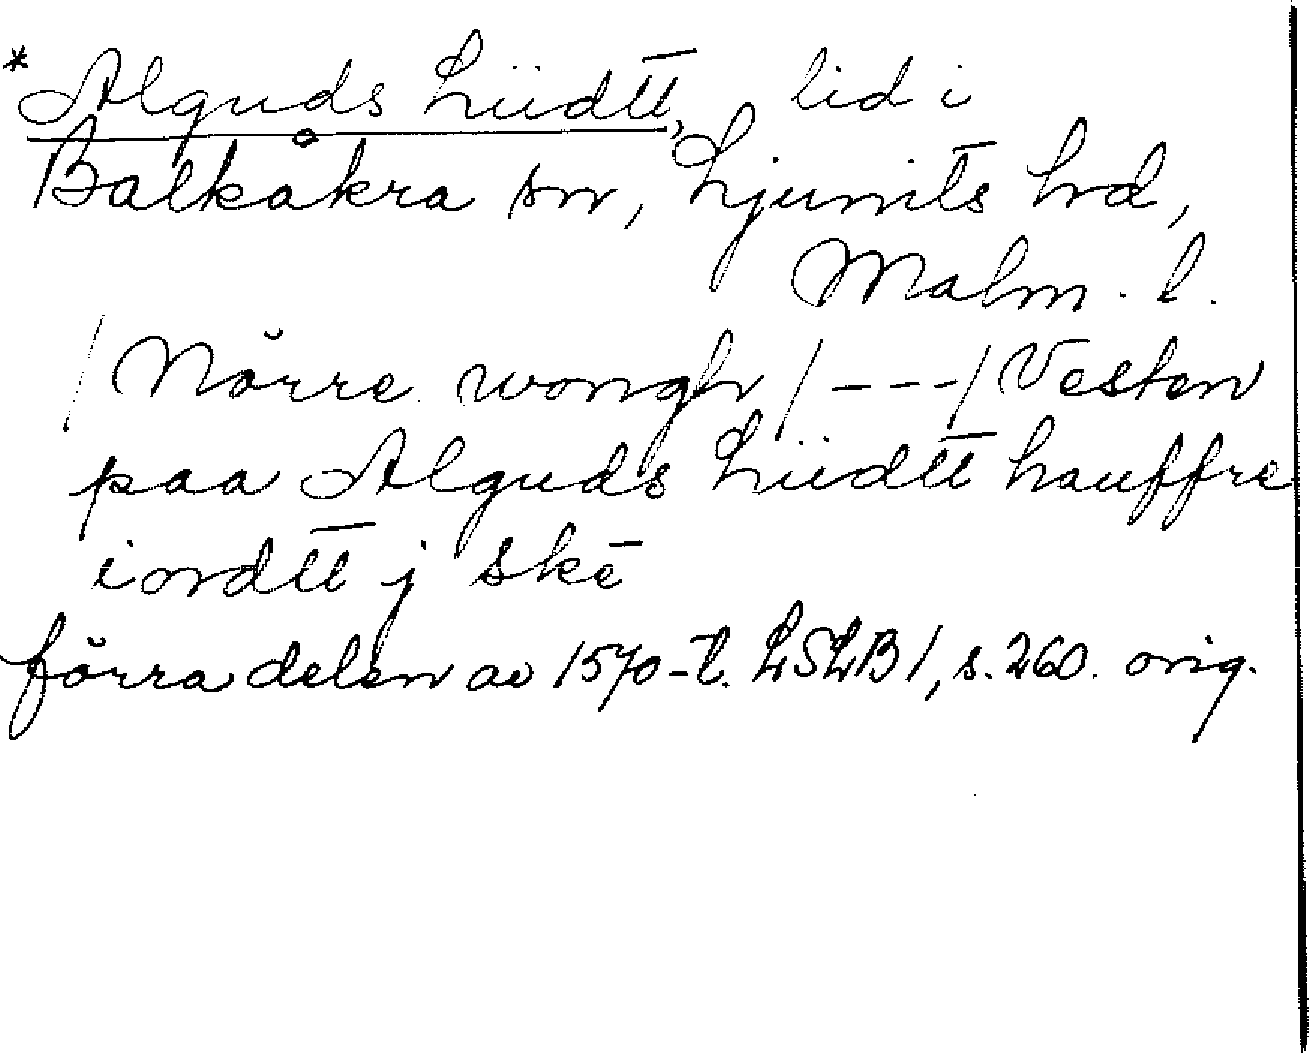 *Alguds Liidtt, lid i
Balkåkra sn, Ljunits hd,
Malm. l.
/Nörre wongh/---/Vesten
paa Alguds Liidtt hauffre
iordtt j skē
förra delen av 1570-t. LSLB1, s. 260. orig.